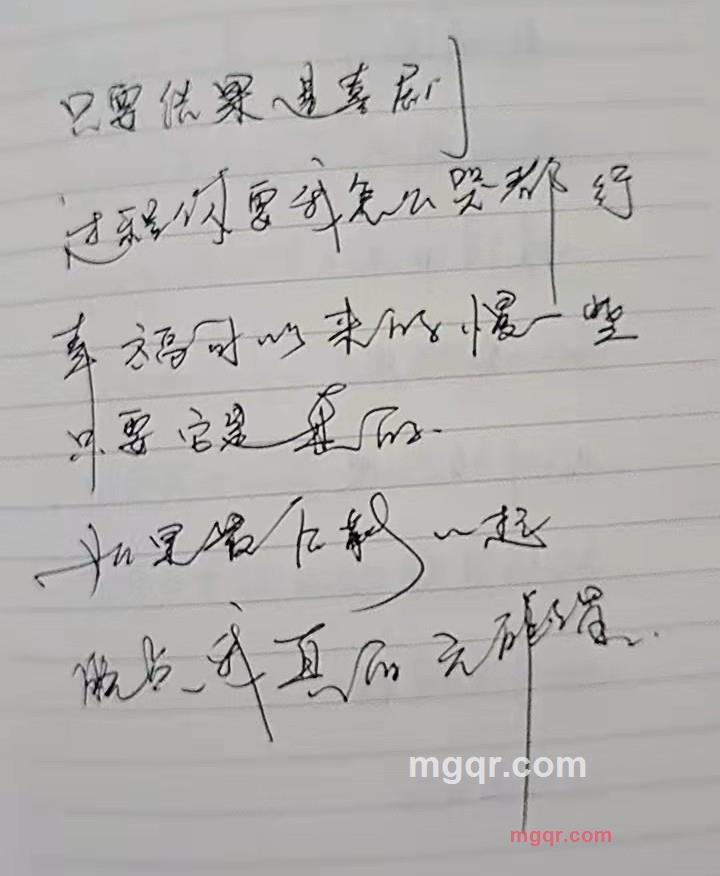 只要结果是喜剧
过程你要我怎么哭都行
幸福可以来的慢一些
只要它是真的
如果最后能一起
晚点我真的无所谓
mgqr.com
mgqr.com